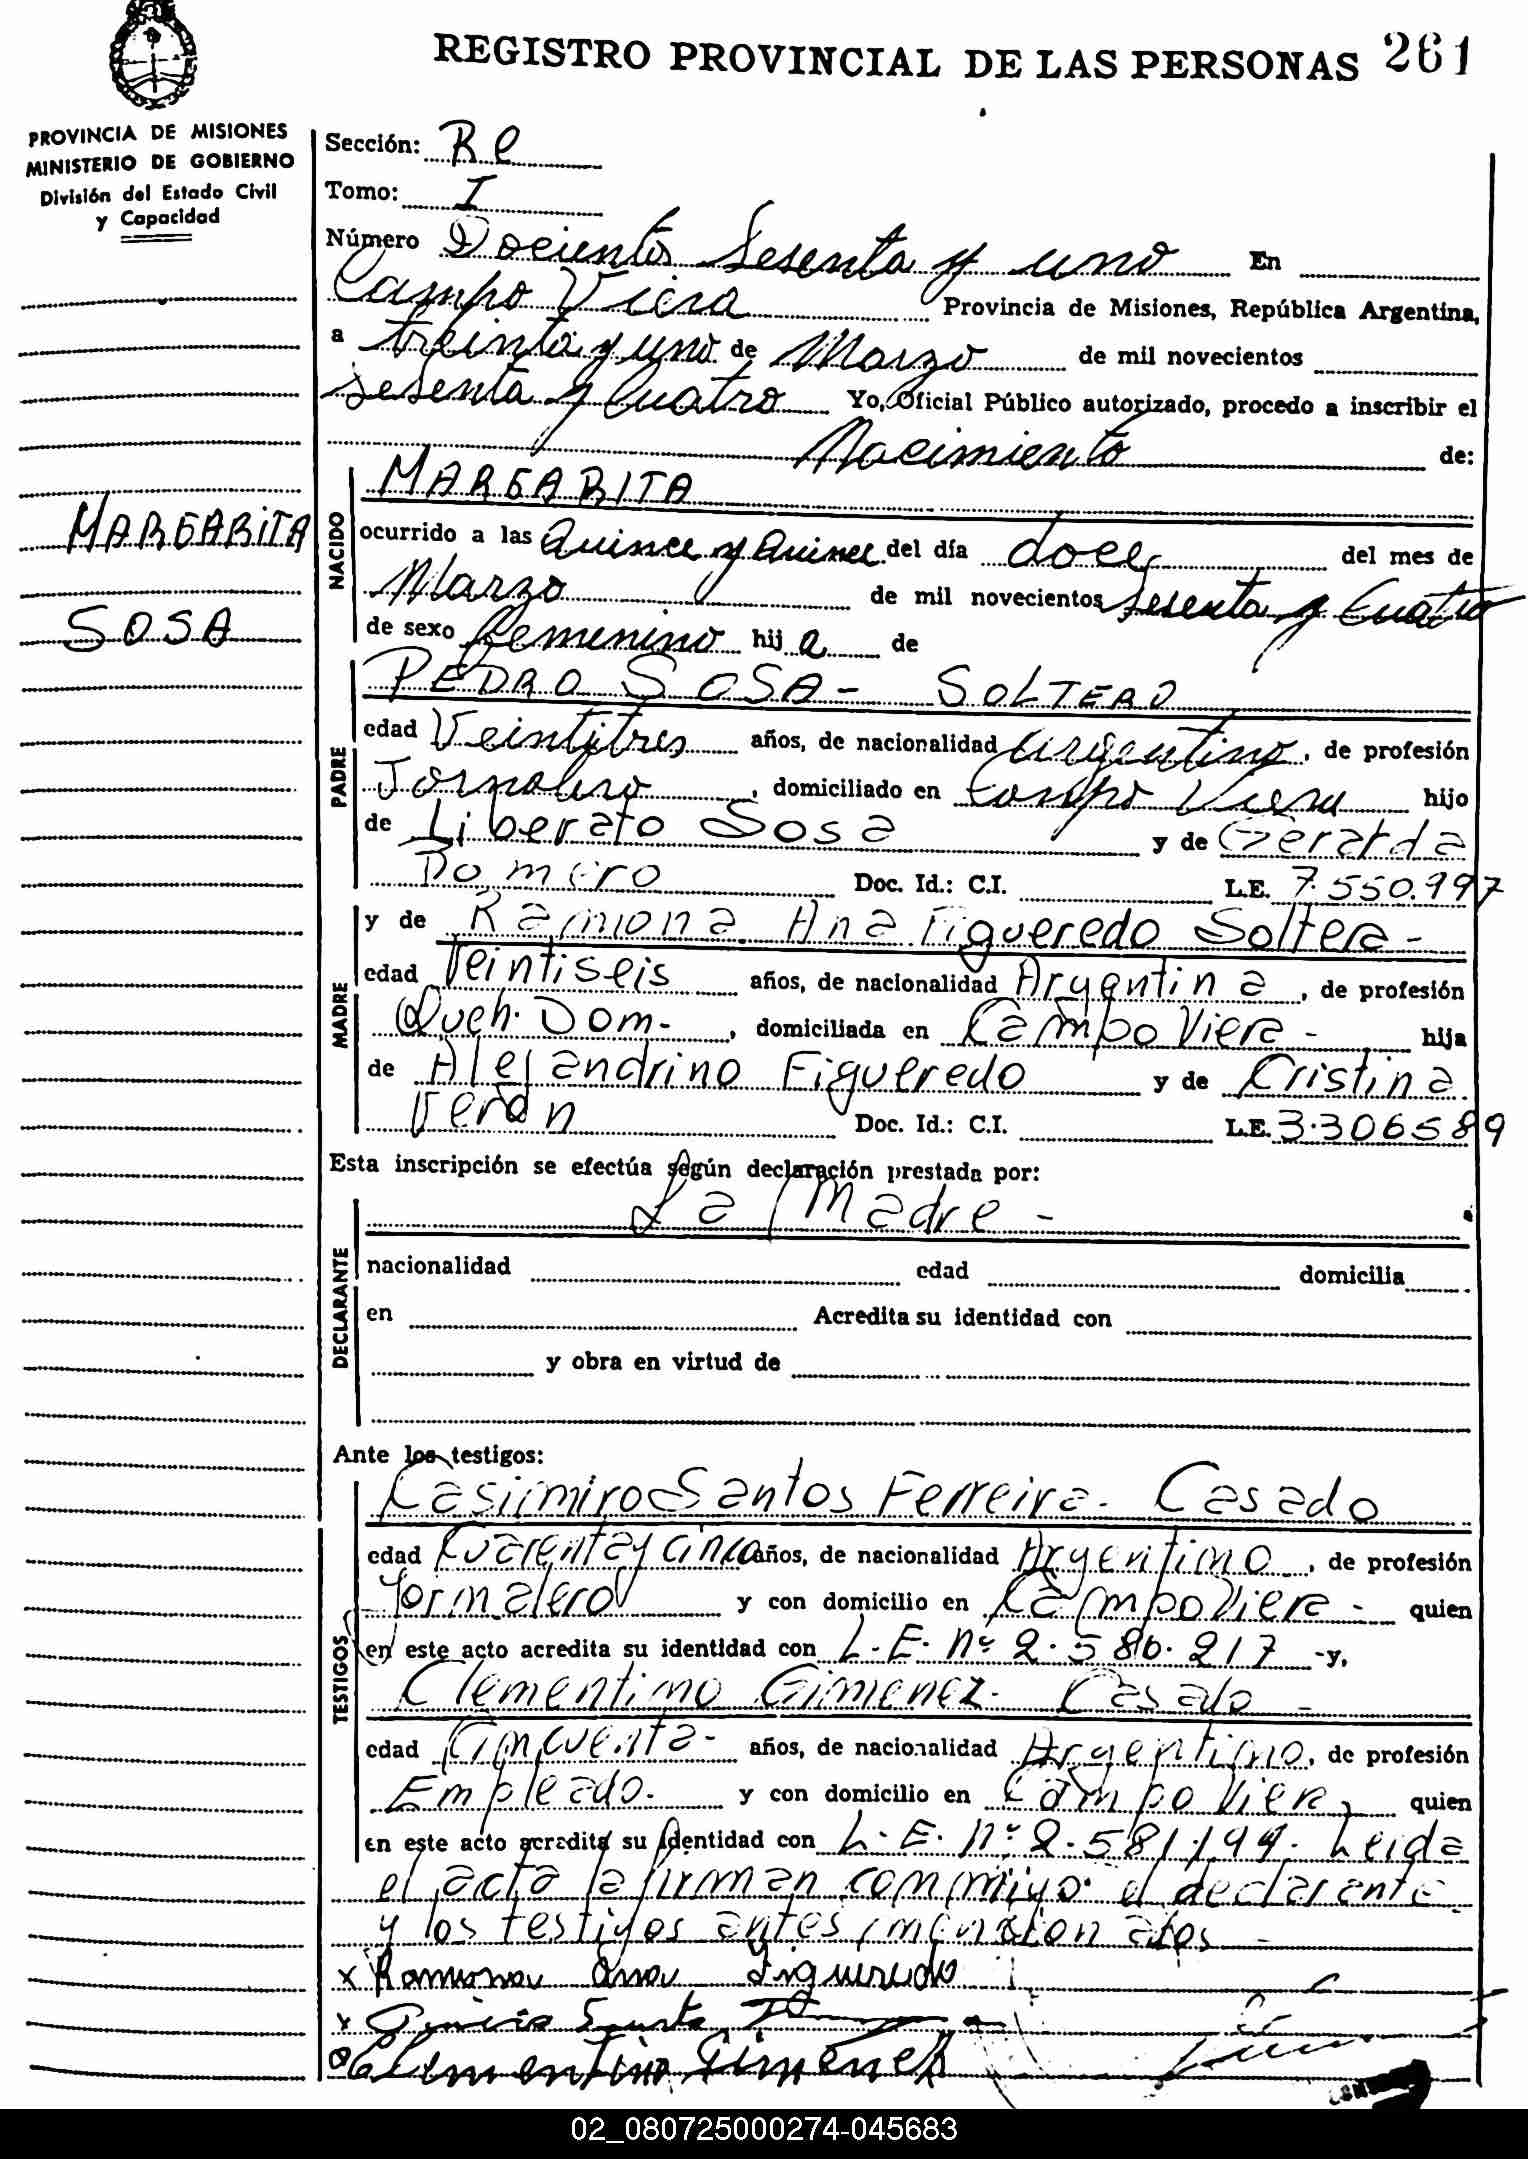 REGISTRO PROVINCIAL DE LAS PERSONAS 261
PROVINCIA DE MISIONES
MINISTERIO DE GOBIERNO
División del Estado Civil
y Capacidad
MARGARITA
SOSA
Sección: Re
Tomo: I
Número Dociento Sesenta y uno En
Campo Viera Provincia de Misiones, República Argentina,
a treinta y uno de Marzo de mil novecientos
sesenta y Cuatro Yo, Oficial Público autorizado, procedo a inscribir el
Nacimiento de:
NACIDO
MARGARITA
ocurrido a las Quince y Quince del día doce del mes de
Marzo de mil novecientos sesenta y Cuatro
de sexo femenino hij a de
PADRE
PEDRO SOSA - SOLTERO
edad Veintitres años, de nacionalidad Argentino, de profesión
Jornalero, domiciliado en Campo Viera hijo
de Liberato Sosa y de Gerarda
Romero Doc. Id.: C.I. L.E. 7.550.997
MADRE
y de Ramona Ana Figueredo Soltera -
edad Veintiseis años, de nacionalidad Argentina, de profesión
Queh. Dom-, domiciliada en Campo Viera - hija
de Alejandrino Figueredo y de Cristina
Verón Doc. Id.: C.I. L.E. 3.306589
Esta inscripción se efectúa según declaración prestada por:
DECLARANTE
La Madre -
nacionalidad edad domicilia
en Acredita su identidad con
y obra en virtud de
Ante los testigos:
TESTIGOS
Casimiro Santos Ferreira - Casado
edad Cuarenta y cinco años, de nacionalidad Argentino, de profesión
Jornalero y con domicilio en Campo Viera - quien
en este acto acredita su identidad con L.E. nº 2.586.217 -y,
Clementino Gimenez - Casado -
edad Cincuenta - años, de nacionalidad Argentino, de profesión
Empleado. y con domicilio en Campo Viera, quien
en este acto acredita su identidad con L.E. nº 2.581.194. Leida
el acta la firman conmigo el declarante
y los testigos antes mencionados -
x Ramona Ana Figueredo
x
Clementino Gimenez
02_080725000274-045683